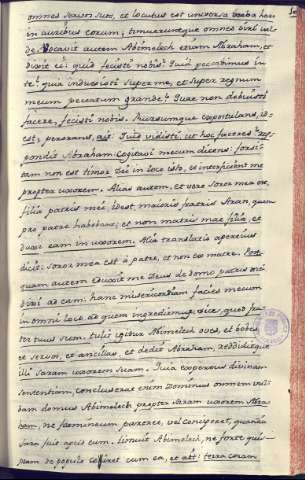 omnes servos suos, et locutus est universa verba hæc
in auribus eorum; timueruntque omnes viri val-
de. Vocavit autem Abimelech etiam Abraham, et
dixit ei: quid fecisti nobis? Quid peccavimus in
te? quia induxisti super me, et super regnum
meum peccatum grande? Quæ non debuisti
facere, fecisti nobis. Rursumque expostulans, id
est, perorans, ait: Quid vidisti, ut hoc faceres? Res-
pondit Abraham: Cogitavi mecum dicens: forsi-
tam non est timor Dei in loco isto, et interficient me
propter uxorem. Alias autem, et vere soror mea est,
filia patris mei, idest, maioris fratris Aran, quem
pro patre habebam, et non matris meæ filia, et
duxi eam in uxorem. Alia translatio apertius
dicit: soror mea est à patre, et non ex matre. Post-
quam autem duxit me Deus de domo patris mei
dixi ad eam: hanc misericordiam facies mecum
in omni loco, ad quem ingrediemur, dices, quod fra-
ter tuus sum. tulit igitur Abimelech oves, et boves,
et servos, et ancillas, et dedit Abraham, reddiditque
illi Saram uxorem suam. Quia expertus divinam
sententiam, concluserat enim Dominus omnem vul-
vam domus Abimelech propter Saram uxorem Abra-
ham, ne fœmineum pareret, vel conciperet, quandiu
Sara fuit apud eum. timuit Abimelech, ne forte quis-
piam de populo coiret cum ea, et ait: terra coram